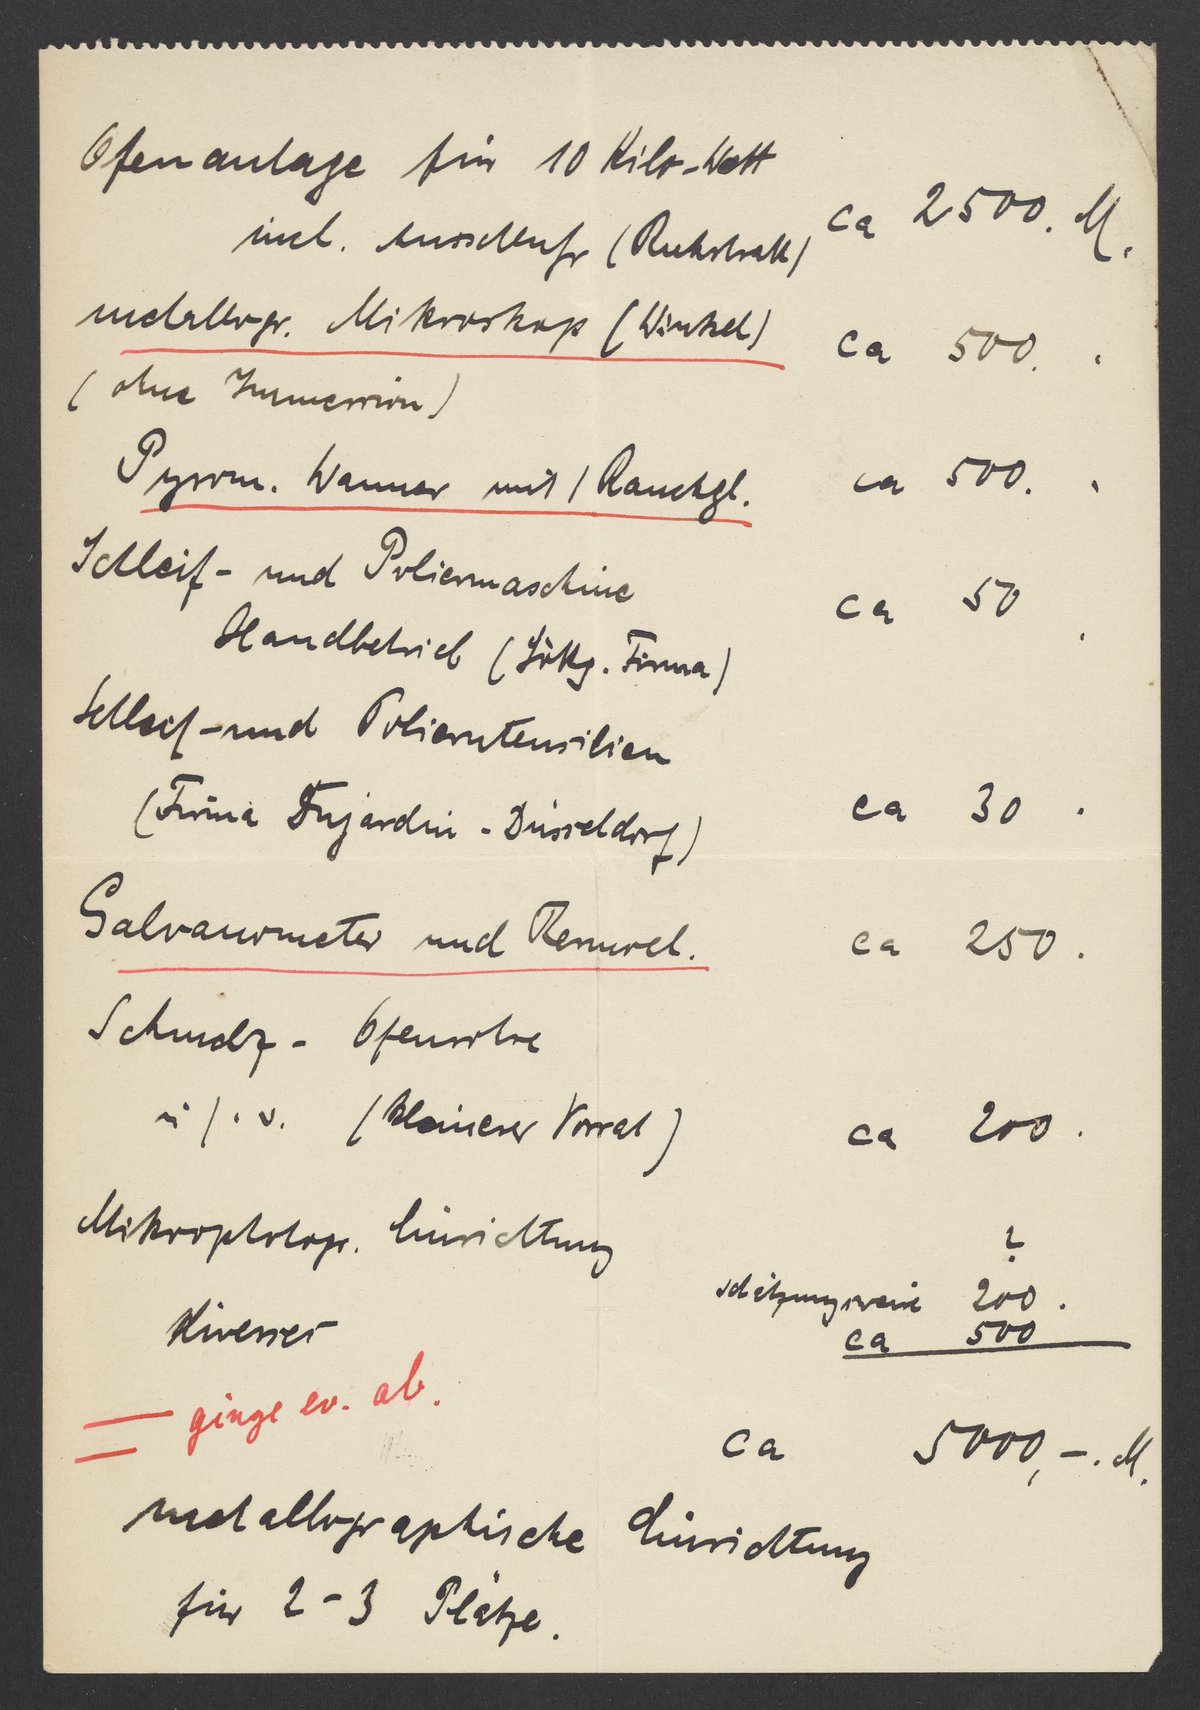 Ofenanlage für 10 Kilo-Watt
incl. Anschluss (Ruhstratt) ca 2500. M.
metallogr. Mikroskop (Winkel) ca 500. "
(ohne Immersion)
Pyrom. Wanner mit 1 Rauchgl. ca 500. "
Schleif- und Poliermaschine
Handbetrieb (Göttg. Firma) ca 50 "
Schleif- und Polierutensilien
(Firma Dujardin - Düsseldorf) ca 30 "
Galvanometer und ca 250.
Schmelz- Ofenrohre
u. s. w. (kleiner Vorrat) ca 200.
Mikrophotogr. Einrichtung ?
schätzungsweise 200.
Diverses ca 500
ginge ev. ab.
ca 5000,-. M.
metallographische Einrichtung
für 2-3 Plätze.